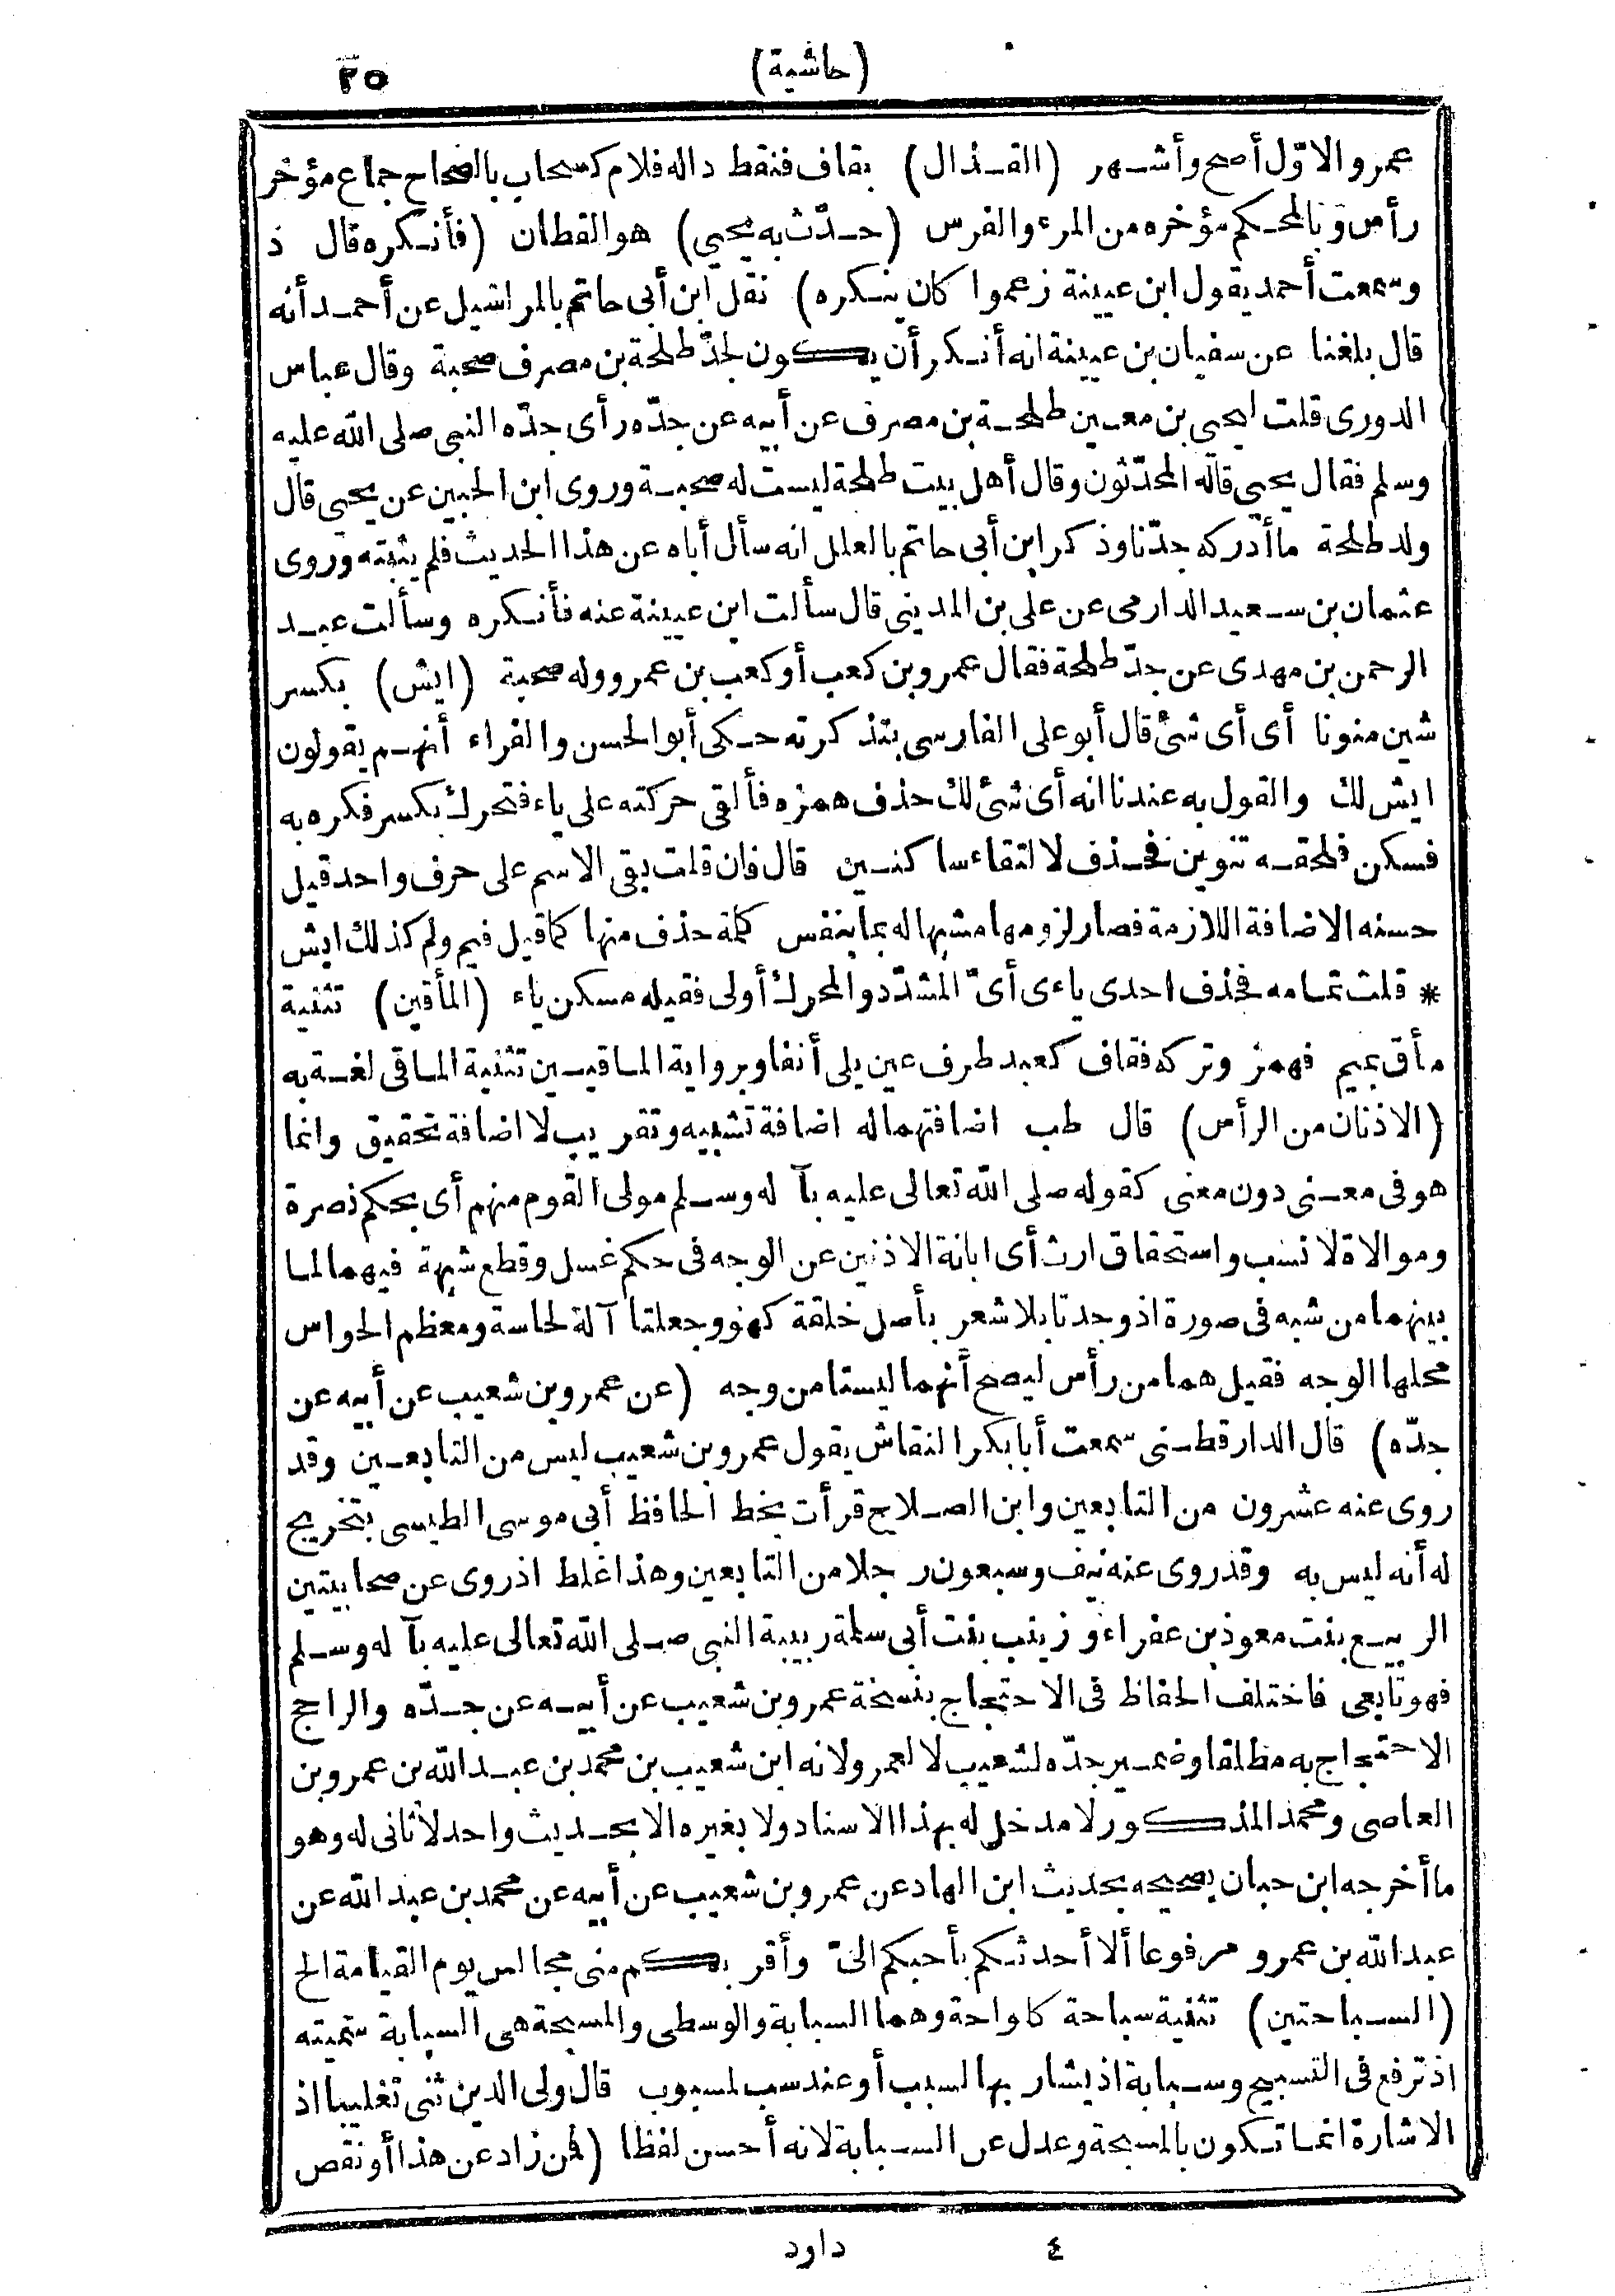 (حاشية) ٢٥
عمرو والاوّل أصح وأشهر (القذال) بقاف فنقط داله فلام كسحاب بالصحاح جماع مؤخر
رأس وبالمحكم مؤخره من المرء والفرس (حدّث به يحيى) هو القطان (فأنكره قال ذ
وسمعت أحمد يقول ابن عيينة زعموا كان ينكره) نقل ابن أبى حاتم بالمراسيل عن أحمد أنه
قال بلغنا عن سفيان بن عيينة انه أنكر أن يكون لجدّ طلحة بن مصرف صحبة وقال عباس
الدورى قلت ليحيى بن معين طلحة بن مصرف عن أبيه عن جدّه رأى جدّه النبى صلى الله عليه
وسلم فقال يحيى قاله المحدّثون وقال أهل بيت طلحة ليست له صحبة وروى ابن الحبين عن يحيى قال
ولد طلحة ما أدركه جدّنا وذكر ابن أبى حاتم بالعلل انه سأل أباه عن هذا الحديث فلم يثبته وروى
عثمان بن سعيد الدارمى عن على بن المدينى قال سألت ابن عيينة عنه فأنكره وسألت عبد
الرحمن بن مهدى عن جدّ طلحة فقال عمرو بن كعب أو كعب بن عمرو وله صحبة (ايش) بكسر
شين منونا أى أى شئ قال أبو على الفارسى بتذكرته حكى أبو الحسن والفراء أنهم يقولون
ايش لك والقول به عندنا انه أى شئ لك حذف همزه فألقى حركته على ياء فتحرك بكسر فكره به
فسكن فلحقه تنوين فحذف لالتقاء ساكنين قال فان قلت بقى الاسم على حرف واحد قيل
حسنه الاضافة اللازمة فصار لزومها مشبها له بما بنفس كلمة حذف منها كما قيل فيم ولم كذلك ايش
* قلت تمامه فحذف احدى ياءى أىّ المشدّد والمحرك أولى فقيله مسكن ياء (المأقين) تثنية
مأق بميم فهمز وتركه فقاف كعبد طرف عين يلى أنفا وبرواية الماقيين تثنية الماقى لغة به
(الاذنان من الرأس) قال طب اضافتهما له اضافة تشبيه وتقريب لا اضافة تحقيق وانما
هو فى معنى دون معنى كقوله صلى الله تعالى عليه بآ له وسلم مولى القوم منهم أى بحكم نصرة
وموالاة لا نسب واستحقاق ارث أى ابانة الاذنين عن الوجه فى حكم غسل وقطع شبهة فيهما لما
بينهما من شبه فى صورة اذ وجدتا بلا شعر بأصل خلقة كهو وجعلتا آلة لحاسة ومعظم الحواس
محلها الوجه فقيل هما من رأس ليصح أنهما ليستا من وجه (عن عمرو بن شعيب عن أبيه عن
جدّه) قال الدارقطنى سمعت أبا بكر النقاش يقول عمرو بن شعيب ليس من التابعين وقد
روى عنه عشرون من التابعين وابن الصلاح قرأت بخط الحافظ أبى موسى الطبسى بتخريج
له أنه ليس به وقد روى عنه نيف وسبعون رجلا من التابعين وهذا غلط اذ روى عن صحابيتين
الربيع بنت معوذ بن عفراء وزينب بنت أبى سلمة ربيبة النبى صلى الله تعالى عليه بآ له وسلم
فهو تابعى فاختلف الحفاظ فى الاحتجاج بنسخة عمرو بن شعيب عن أبيه عن جدّه والراجح
الاحتجاج به مطلقا وضمير جدّه لشعيب لا لعمر ولانه ابن شعيب بن محمد بن عبد الله بن عمرو بن
العاصى ومحمد المذكور لا مدخل له بهذا الاسناد ولا بغيره الا بحديث واحد لا ثانى له وهو
ما أخرجه ابن حبان بصحيحه بحديث ابن الهاد عن عمرو بن شعيب عن أبيه عن محمد بن عبد الله عن
عبد الله بن عمرو مرفوعا ألا أحدثكم بأحبكم الىّ وأقربكم منى مجالس يوم القيامة الخ
(السباحتين) تثنية سباحة كواحة وهما السبابة والوسطى والمسبحة هى السبابة سميته
اذ ترفع فى التسبيح وسبابة اذ يشار بها لسبب أو عند سب لمسبوب قال ولى الدين ثنى تغليبا اذ
الاشارة انما تكون بالمسبحة وعدل عن السبابة لانه أحسن لفظا (فمن زاد عن هذا أو نقص
٤ داود